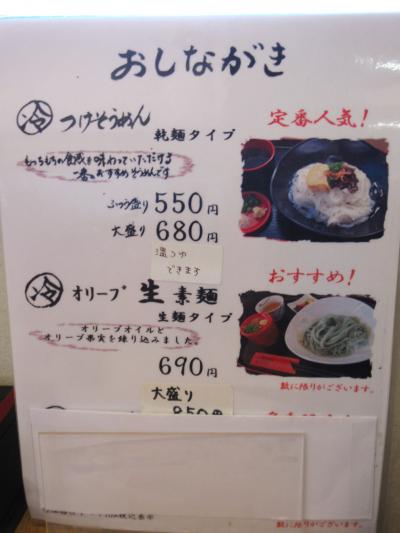 おしながき
冷 つけそうめん
定番人気!
乾麺タイプ
もっちもちの食感を味わっていただける
一番おすすめそうめんです
ふつう盛り 550円
大盛り 680円
温つゆ
できます
おすすめ!
冷 オリーブ 生素麺
生麺タイプ
オリーブオイルと
オリーブ果実を練り込みました。
690円
数に限りがございます。
大盛り
850円
税込表示
数に限りがございます。